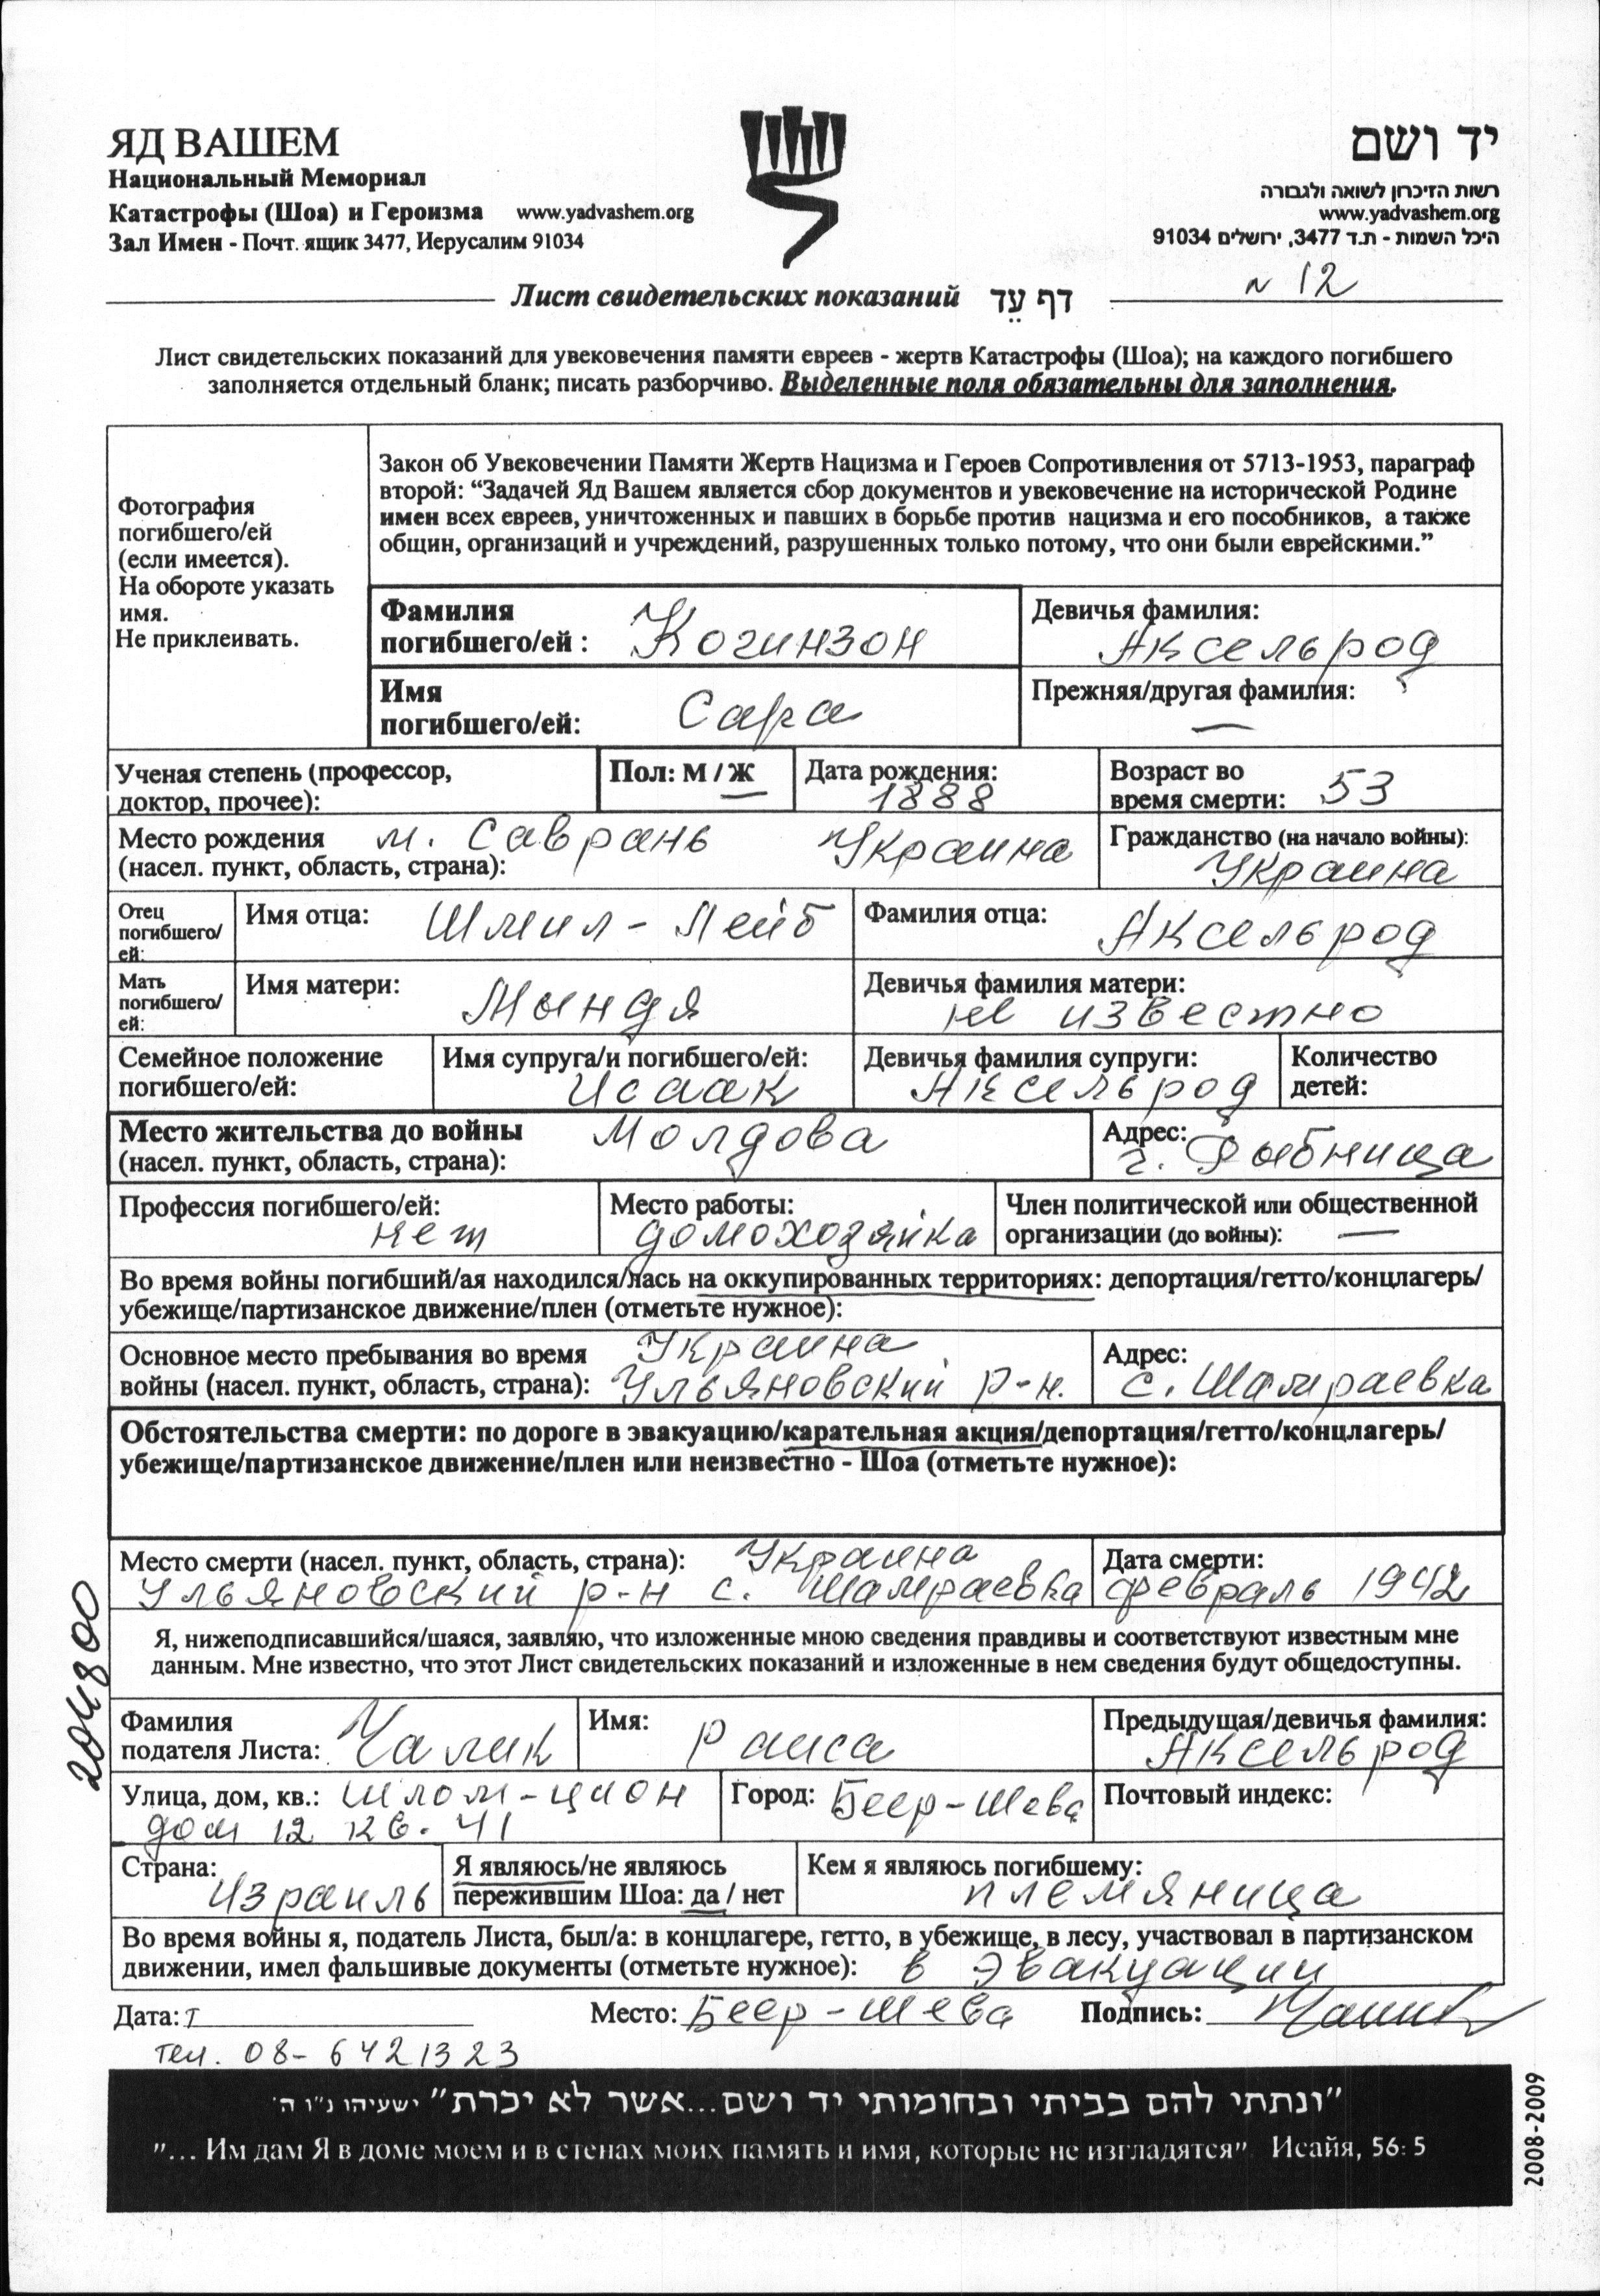 ЯД ВАШЕМ
Национальный Мемориал
Катастрофы (Шоа) и Героизма www.yadvashem.org
Зал Имен - Почт. ящик 3477, Иерусалим 91034
יד ושם
רשות הזיכרון לשואה ולגבורה
www.yadvashem.org
היכל השמות - ת.ד 3477, ירושלים 91034
N 12
Лист свидетельских показаний דף עֵד
Лист свидетельских показаний для увековечения памяти евреев - жертв Катастрофы (Шоа); на каждого погибшего
заполняется отдельный бланк; писать разборчиво. Выделенные поля обязательны для заполнения.
Фотография
погибшего/ей
(если имеется).
На обороте указать
имя.
Не приклеивать.
Закон об Увековечении Памяти Жертв Нацизма и Героев Сопротивления от 5713-1953, параграф
второй: “Задачей Яд Вашем является сбор документов и увековечение на исторической Родине
имен всех евреев, уничтоженных и павших в борьбе против нацизма и его пособников, а также
общин, организаций и учреждений, разрушенных только потому, что они были еврейскими.”
Фамилия
погибшего/ей : Когинзон
Девичья фамилия:
Аксельрод
Имя
погибшего/ей: Сара
Прежняя/другая фамилия:
—
Ученая степень (профессор,
доктор, прочее):
Пол: М / Ж
Дата рождения:
1888
Возраст во
время смерти: 53
Место рождения м. Саврань Украина
(насел. пункт, область, страна):
Гражданство (на начало войны):
Украина
Отец
погибшего/
ей:
Имя отца: Шмил - Лейб
Фамилия отца:
Аксельрод
Мать
погибшего/
ей:
Имя матери:
Мындя
Девичья фамилия матери:
не известно
Семейное положение
погибшего/ей:
Имя супруга/и погибшего/ей:
Исаак
Девичья фамилия супруги:
Аксельрод
Количество
детей:
Место жительства до войны Молдова
(насел. пункт, область, страна):
Адрес:
г. Рыбница
Профессия погибшего/ей:
нет
Место работы:
домохозяйка
Член политической или общественной
организации (до войны): —
Во время войны погибший/ая находился/лась на оккупированных территориях: депортация/гетто/концлагерь/
убежище/партизанское движение/плен (отметьте нужное):
Основное место пребывания во время Украина
войны (насел. пункт, область, страна): Ульяновский р-н.
Адрес:
с. Шамраевка
Обстоятельства смерти: по дороге в эвакуацию/карательная акция/депортация/гетто/концлагерь/
убежище/партизанское движение/плен или неизвестно - Шоа (отметьте нужное):
Место смерти (насел. пункт, область, страна): Украина
Ульяновский р-н с. Шамраевка
Дата смерти:
февраль 1942
Я, нижеподписавшийся/шаяся, заявляю, что изложенные мною сведения правдивы и соответствуют известным мне
данным. Мне известно, что этот Лист свидетельских показаний и изложенные в нем сведения будут общедоступны.
Фамилия
подателя Листа: Чалик
Имя:
Раиса
Предыдущая/девичья фамилия:
Аксельрод
Улица, дом, кв.: Шлом-цион
дом 12 кв. 41
Город: Беер-Шева
Почтовый индекс:
Страна:
Израиль
Я являюсь/не являюсь
пережившим Шоа: да / нет
Кем я являюсь погибшему:
племяница
Во время войны я, податель Листа, был/а: в концлагере, гетто, в убежище, в лесу, участвовал в партизанском
движении, имел фальшивые документы (отметьте нужное): в эвакуации
Дата:
Место: Беер-Шева
Подпись:
тел. 08- 6421323
"ונתתי להם בביתי ובחומותי יד ושם...אשר לא יכרת" ישעיהו נ"ו ה'
"... Им дам Я в доме моем и в стенах моих память и имя, которые не изгладятся" Исайя, 56: 5
204800
2008-2009